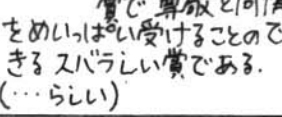 賞で尊敬と同情
をめいっぱい受けることので
きるスバラしい賞である.
(…らしい)